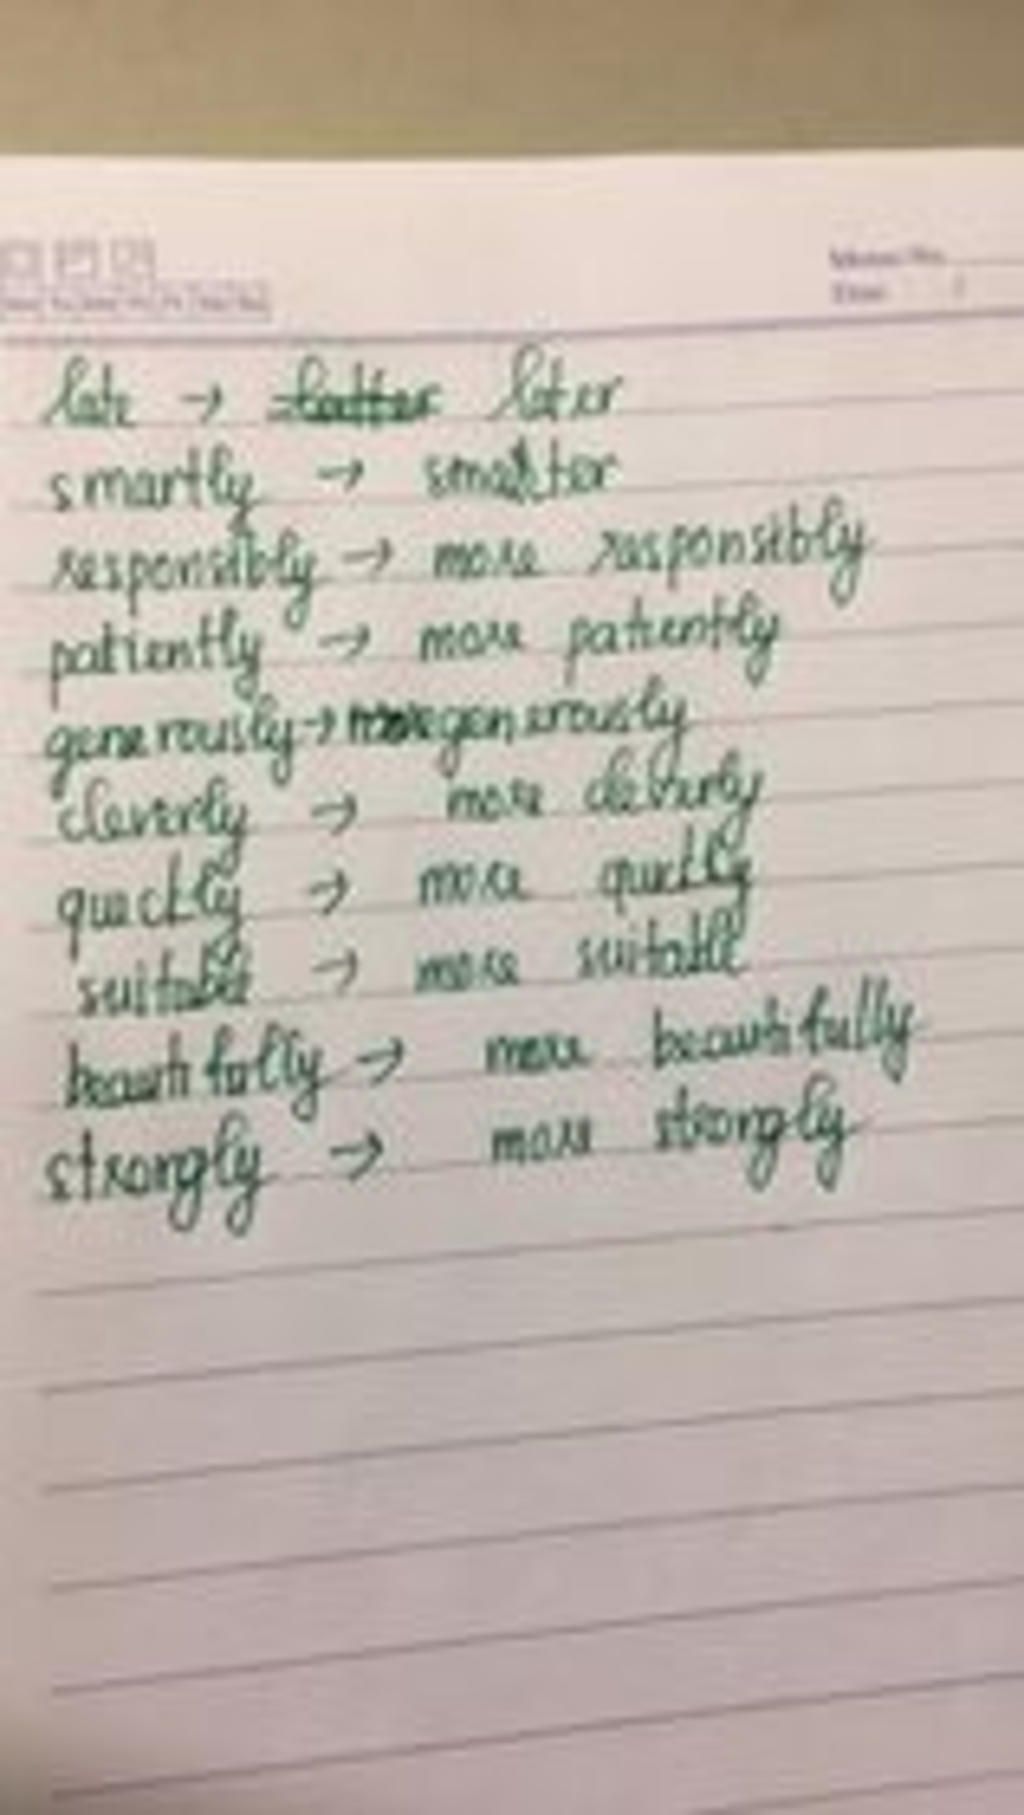 late → latter later
smartly → smarter
responsibly → more responsibly
patiently → more patiently
generously → more generously
cleverly → more cleverly
quickly → more quickly
suitable → more suitable
beautifully → more beautifully
strongly → more strongly